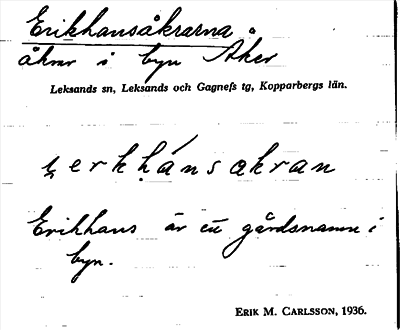 Erikhansåkrarna
åkrar i byn Åker
Leksands sn, Leksands och Gagnefs tg, Kopparbergs län.
erkhánsakran
Erikhans är ett gårdsnamn i
byn.
ERIK M. CARLSSON, 1936.